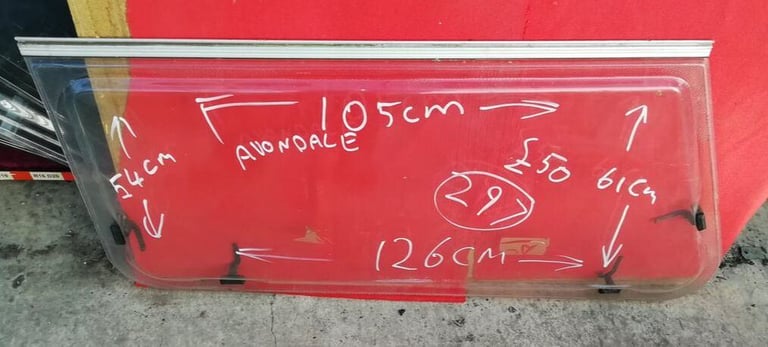 105cm
AVONDALE
£50
54cm
61cm
297
126cm